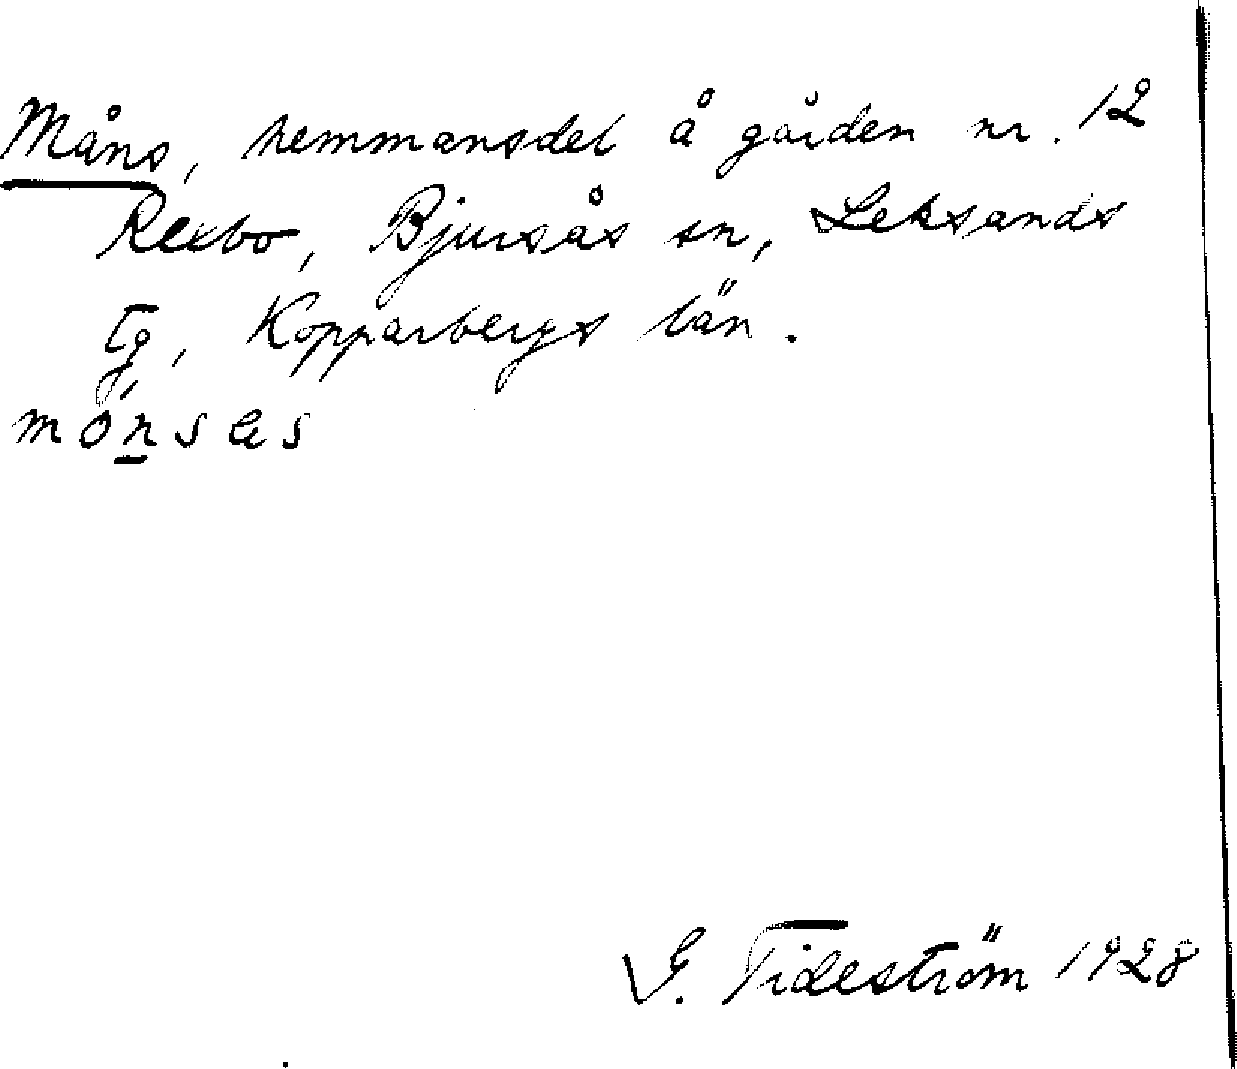 Måns, hemmansdel å gården nr. 12
Rexbo, Bjursås sn, Leksands
tg, Kopparbergs län.
G. Tideström 1928